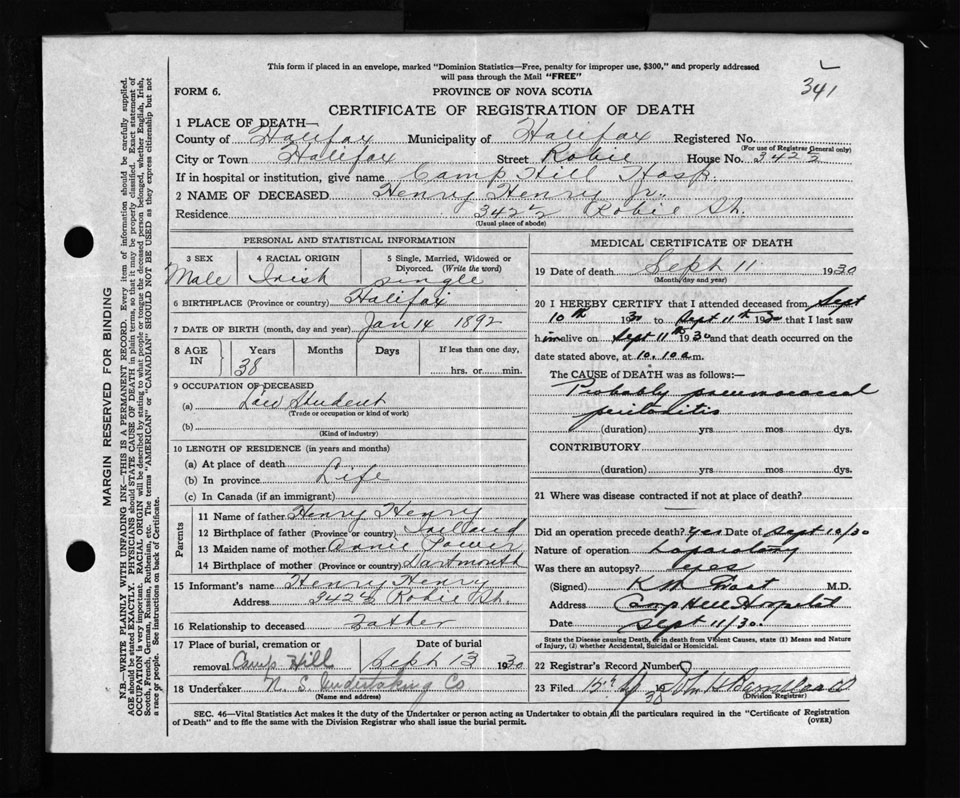 This form if placed in an envelope, marked "Dominion Statistics—Free, penalty for improper use, $300," and properly addressed
will pass through the Mail "FREE"
341
FORM 6.
PROVINCE OF NOVA SCOTIA
CERTIFICATE OF REGISTRATION OF DEATH
1 PLACE OF DEATH—
County of Halifax Municipality of Halifax Registered No.
(For use of Registrar General only)
City or Town Halifax Street Robie House No. 342½
If in hospital or institution, give name Camp Hill Hosp.
2 NAME OF DECEASED Henry Henry Jr.
Residence 342½ Robie St.
(Usual place of abode)
PERSONAL AND STATISTICAL INFORMATION
3 SEX 4 RACIAL ORIGIN 5 Single, Married, Widowed or Divorced. (Write the word)
Male Irish Single
6 BIRTHPLACE (Province or country) Halifax
7 DATE OF BIRTH (month, day and year) Jan 14 1892
8 AGE IN Years Months Days If less than one day,
38 hrs. or min.
9 OCCUPATION OF DECEASED
(a) Law Student
(Trade or occupation or kind of work)
(b)
(Kind of industry)
10 LENGTH OF RESIDENCE (in years and months)
(a) At place of death
(b) In province Life
(c) In Canada (if an immigrant)
Parents
11 Name of father Henry Henry
12 Birthplace of father (Province or country)
13 Maiden name of mother Annie Power
14 Birthplace of mother (Province or country) Dartmouth
15 Informant's name Henry Henry
Address 342½ Robie St.
16 Relationship to deceased Father
17 Place of burial, cremation or removal Camp Hill Date of burial Sept 13 1930
18 Undertaker N. S. Undertaking Co
(Name and address)
MEDICAL CERTIFICATE OF DEATH
19 Date of death Sept 11 1930
(Month, day and year)
20 I HEREBY CERTIFY that I attended deceased from Sept
10th 1930 to Sept 11th 1930 that I last saw
him alive on Sept 11th 1930 and that death occurred on the
date stated above, at 10.10 a.m.
The CAUSE of DEATH was as follows:—
Probably pneumococcal
peritonitis
(duration) yrs mos dys.
CONTRIBUTORY
(duration) yrs mos dys.
21 Where was disease contracted if not at place of death?
Did an operation precede death? Yes Date of Sept 10/30
Nature of operation Laparotomy
Was there an autopsy? Yes
(Signed) K. M. M.D.
Address Camp Hill Hospital
Date Sept 11/30.
State the Disease causing Death, or in death from Violent Causes, state (1) Means and Nature
of Injury, (2) whether Accidental, Suicidal or Homicidal.
22 Registrar's Record Number
23 Filed 30 John H Barnstead
(Division Registrar)
SEC. 46—Vital Statistics Act makes it the duty of the Undertaker or person acting as Undertaker to obtain all the particulars required in the "Certificate of Registration
of Death" and to file the same with the Division Registrar who shall issue the burial permit.
(OVER)
MARGIN RESERVED FOR BINDING
N.B.—WRITE PLAINLY WITH UNFADING INK—THIS IS A PERMANENT RECORD. Every item of information should be carefully supplied.
AGE should be stated EXACTLY. PHYSICIANS should STATE CAUSE OF DEATH in plain terms, so that it may be properly classified. Exact statement of
OCCUPATION is very important. RACIAL ORIGIN will be described by stating to what people or tongue the deceased person belonged, whether English, Irish,
Scotch, French, German, Russian, Ruthenian, etc. The terms "AMERICAN" or "CANADIAN" SHOULD NOT BE USED as they express citizenship but not
a race or people. See instructions on back of Certificate.